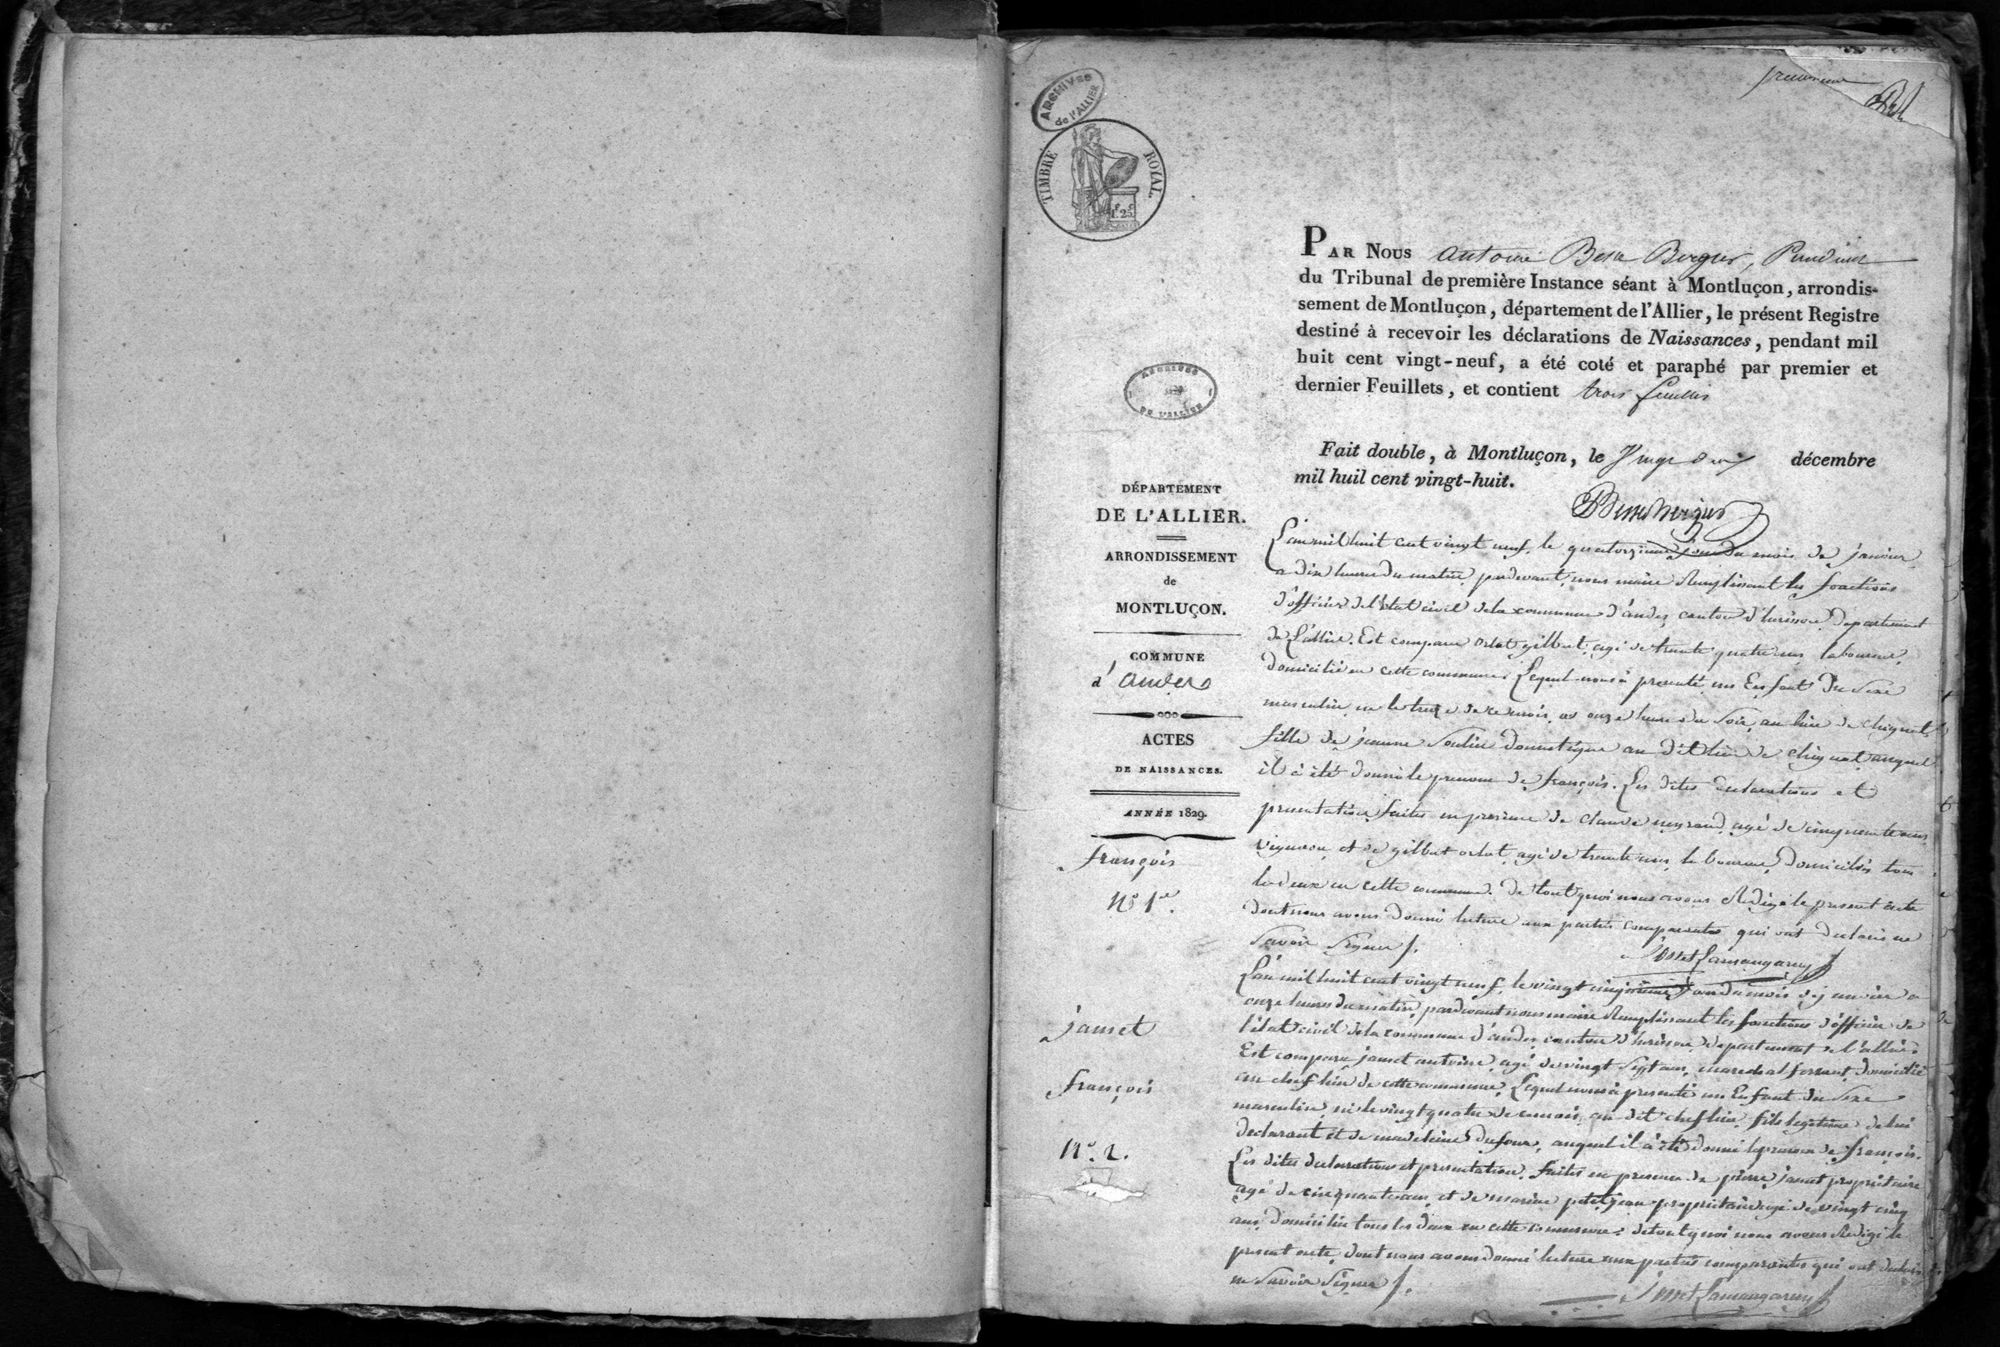 premier
ARCHIVES
de l'ALLIER
TIMBRE ROYAL
1F. 25c
PAR NOUS antoine Besse Bergier, Président
du Tribunal de première Instance séant à Montluçon, arrondis-
sement de Montluçon, département de l'Allier, le présent Registre
destiné à recevoir les déclarations de Naissances, pendant mil
huit cent vingt-neuf, a été coté et paraphé par premier et
dernier Feuillets, et contient trois feuilles
ARCHIVES
DE L'ALLIER
Fait double, à Montluçon, le Vingt décembre
mil huil cent vingt-huit.
DÉPARTEMENT
DE L'ALLIER.
ARRONDISSEMENT
de
MONTLUÇON.
COMMUNE
d'audes
ACTES
DE NAISSANCES.
ANNÉE 1829.
L'an mil huit cent vingt neuf, le quatorzieme jour du mois de janvier
a dix heures du matin pardevant nous maire Remplissant les fonctions
d'officier de l'état civil de la commune d'audes canton d'hérisson, departement
de L'allier. Est comparu orlat gilbert, agé de trente quatre ans laboureur,
domicilié en cette commune, Lequel nous à presenté un Enfant du Sexe
masculin, né le treize de ce mois, as onze heures du Soir, au lieu de chignat,
fille de jeanne domestique au dit lieu de chignat auquel
il à été donné le prenom de françois. Les dites declarations et
presentation faites en presence de claude agé de cinquante ans,
vigneron, et de gilbert orlat, agé de trente ans, laboureur, domiciliés tous
les deux en cette commune. de tout quoi nous avons Redigé le present acte
dont nous avons donné lecture aux parties comparantes qui ont declaré ne
Savoir Signer
françois
N° 1er.
L'an mil huit cent vingt neuf, le vingt cinquieme jour du mois de janvier a
onze heures du matin, pardevant nous maire Remplissant les fonctions d'officier de
l'état civil de la commune d'audes canton d'hérisson, departement de l'allier
Est comparu jamet antoine, agé de vingt Sept ans, marechal ferrant, domicilié
au chef lieu de cette commune, Lequel nous à presenté un Enfant du Sexe
masculin né le vingt quatre de ce mois, au dit chef lieu, fils legitime de lui
declarant et de madeleine Dufour, auquel il à été donné le prenom de françois.
Les dites declarations et presentation, faites en presence de pierre jamet proprietaire
agé de cinquante ans, et de petitjean proprietaire agé de vingt cinq
ans, domiciliés tous les deux en cette commune: de tout quoi nous avons Redigé le
present acte, dont nous avons donné lecture aux parties comparantes qui ont declaré
ne Savoir Signer
jamet
françois
N°. 2.